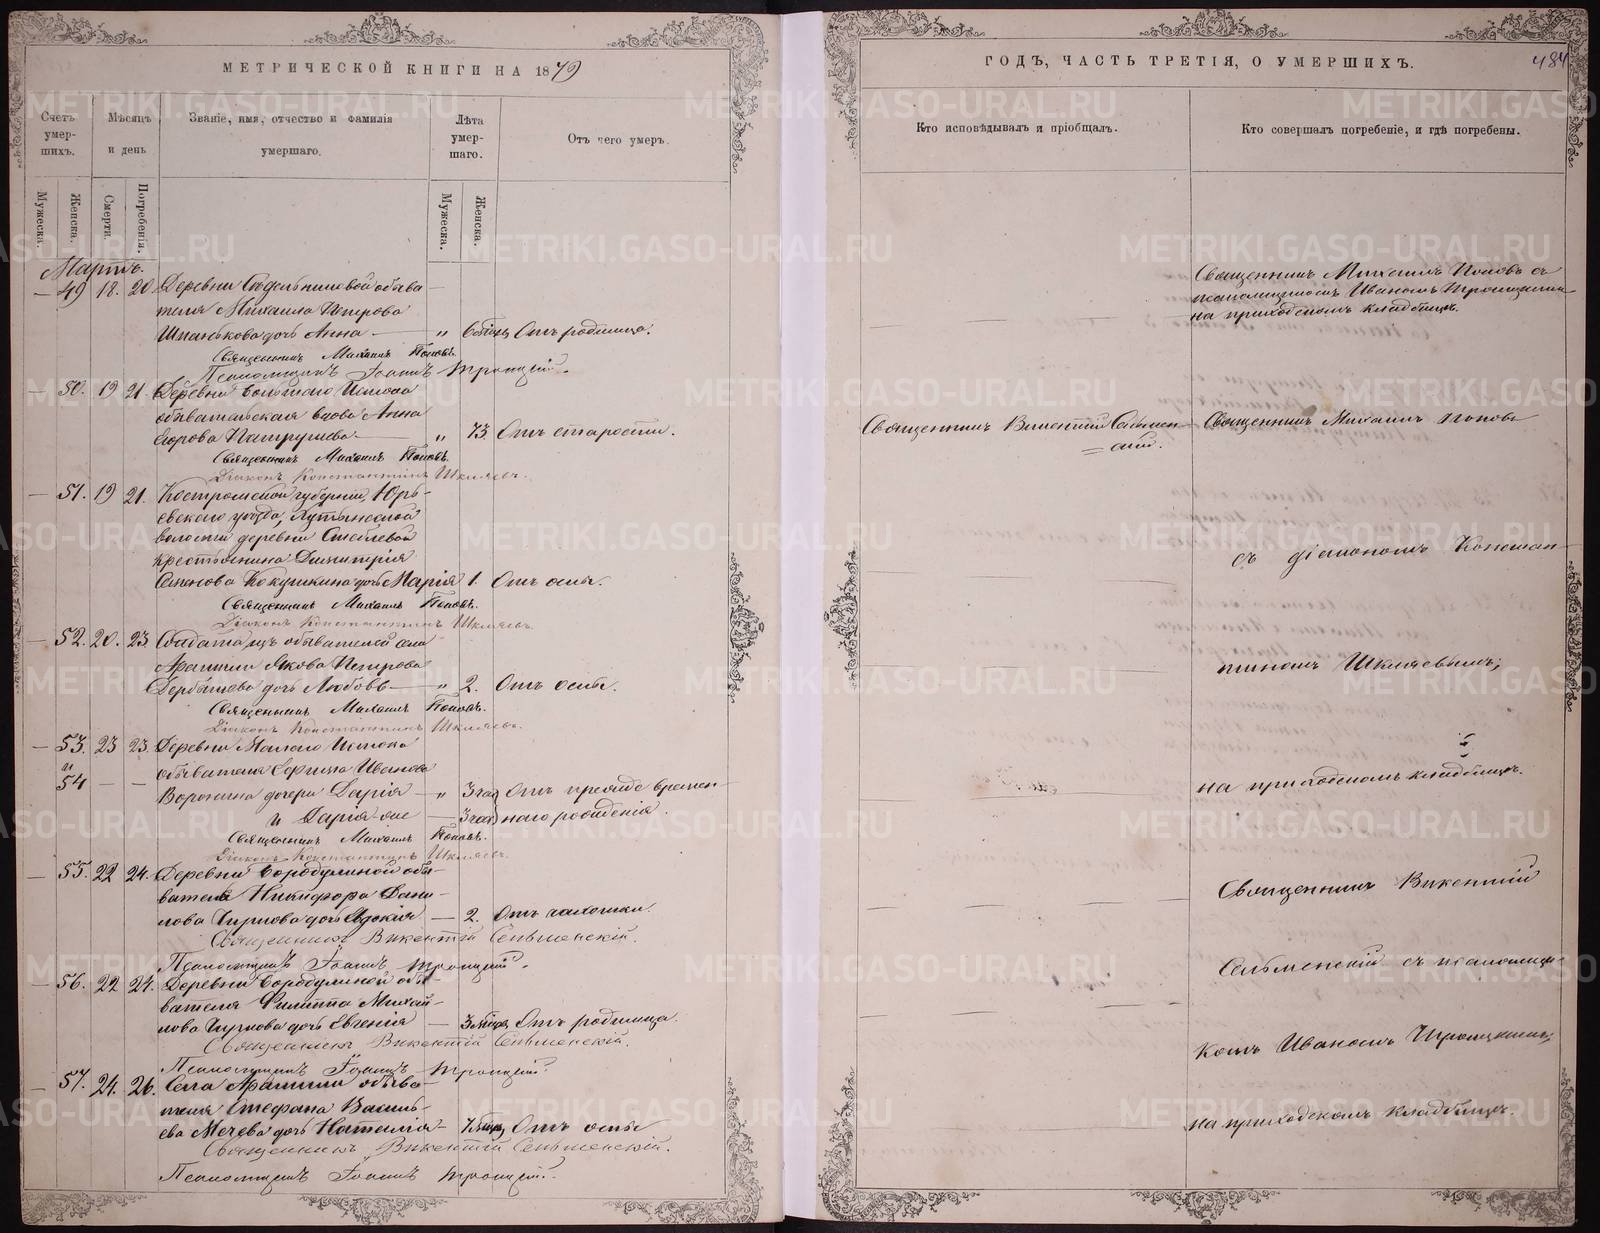 МЕТРИЧЕСКОЙ КНИГИ НА 1879
Счетъ умер-шихъ.
Мѣсяцъ и день
Званіе, имя, отчество и фамилія умершаго.
Лѣта умер-шаго.
Отъ чего умеръ.
Мужеска.
Женска.
Смерти.
Погребенія.
Мужеска.
Женска.
Мартъ.
— 49 18. 20. Деревни обыва-
теля Михаила Петрова
Шпанькова дочь Анна — „ 6 мѣсяц Отъ родимца.
Священникъ Михаилъ Поповъ.
Псаломщикъ Іоаннъ Троицкій.
— 50. 19 21. Деревни Большаго Истока
обывательская вдова Анна
Патрушева — „ 73. Отъ старости.
Священникъ Михаилъ Поповъ.
Діаконъ Константинъ Шкляевъ.
— 51. 19 21. Костромской губерніи, Юрь-
евскаго уѣзда,
волости деревни
крестьянина Димитрія
Семенова Кокушкина дочь Марія 1. Отъ оспы.
Священникъ Михаилъ Поповъ.
Діаконъ Константинъ Шкляевъ.
— 52. 20. 23. Солдата изъ обывателей села
Арамили Якова Петрова
Дербышева дочь Любовь — „ 2. Отъ оспы.
Священникъ Михаилъ Поповъ.
Діаконъ Константинъ Шкляевъ.
— 53. 23 23. Деревни Малаго Истока
и
обывателя Иванова
54 — —
Воронина дочери Дарія — „ 3 час Отъ прежде времен-
и Дарія же — 3 час наго рожденія.
Священникъ Михаилъ Поповъ.
Діаконъ Константинъ Шкляевъ.
— 55. 22 24. Деревни Бородулиной обы-
вателя Никифора Дани-
лова дочь Евдокія — 2. Отъ чахотки.
Священникъ Викентій Сельменскій.
Псаломщикъ Іоаннъ Троицкій.
— 56. 22 24. Деревни Бородулиной обы-
вателя Филиппа Михай-
лова дочь Евгенія — 3 мѣсяц Отъ родимца.
Священникъ Викентій Сельменскій.
Псаломщикъ Іоаннъ Троицкій.
— 57. 24. 26. Села Арамили обыва-
теля Стефана Василь-
ева Мечева дочь Наталія — Отъ оспы
Священникъ Викентій Сельменскій.
Псаломщикъ Іоаннъ Троицкій.
ГОДЪ, ЧАСТЬ ТРЕТІЯ, О УМЕРШИХЪ.
484
Кто исповѣдывалъ и пріобщалъ.
Кто совершалъ погребеніе, и гдѣ погребены.
Священникъ Михаилъ Поповъ съ
псаломщикомъ Иваномъ Троицкимъ
на приходскомъ кладбищѣ.
Священникъ Викентій Сельмен-
скій.
Священникъ Михаилъ Поповъ
съ діакономъ Констан-
тиномъ Шкляевымъ;
на приходскомъ кладбищѣ.
Священникъ Викентій
Сельменскій съ псаломщи-
комъ Иваномъ Троицкимъ;
на приходскомъ кладбищѣ.
METRIKI.GASO-URAL.RU